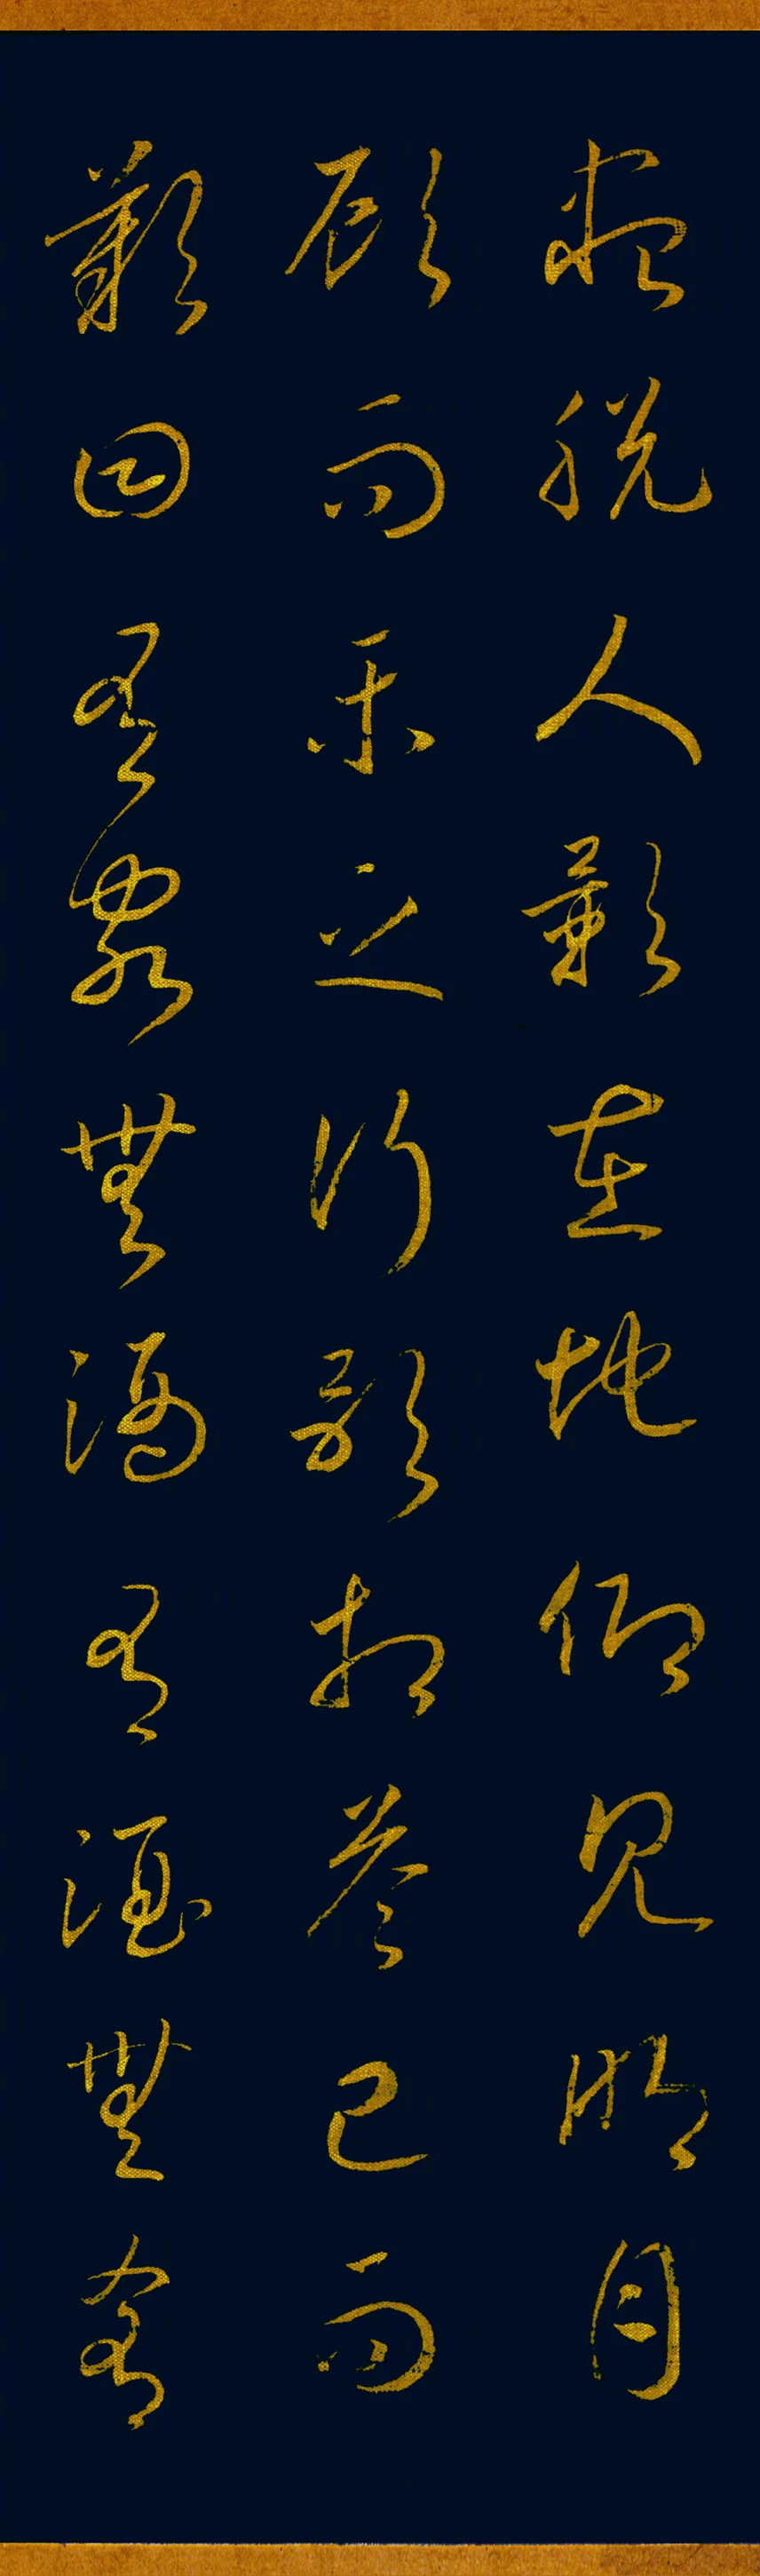 盡脫人影在地仰見明月
顧而樂之行歌相答已而
歎曰有客無酒有酒無肴